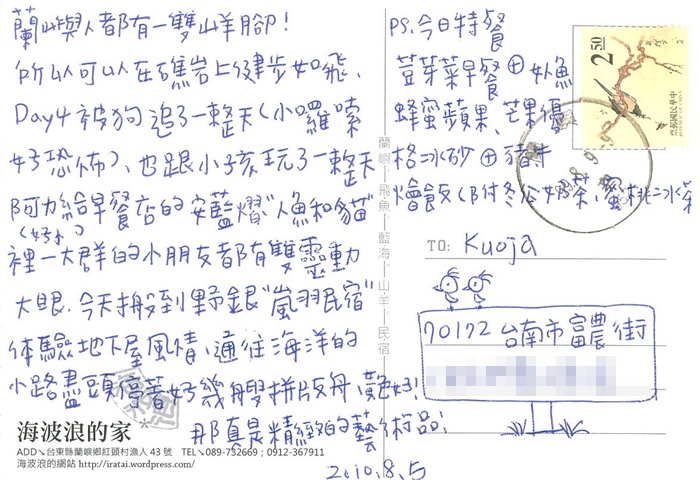 蘭嶼人都有一雙山羊腳!
所以可以在礁岩上健步如飛、
Day4 被狗追了一整天(小囉嗦
好恐怖)、也跟小孩玩了一整天
阿力給早餐店的安藍熠"人魚和貓"
(好水)
裡一大群的小朋友都有雙靈動
大眼、今天搬到野銀"嵐羽民宿"
体驗地下屋風情、通往海洋的
小路盡頭停著好幾艘拼版舟、艷
那真是精緻的藝術品!
2010.8.5
PS.今日特餐
荳芽菜早餐⊕
蜂蜜蘋果、芒果優
格冰砂⊕豬
燴飯(附冬谷奶茶、蜜桃冰茶
蘭嶼|飛魚|藍海|山羊|民宿
2.50
中華民國郵票
TO: Kuoja
70172 台南市富農街
海波浪的家
ADD↘台東縣蘭嶼鄉紅頭村漁人 43 號 TEL↘089-732669;0912-367911
海波浪的網站 http://iratai.wordpress.com/